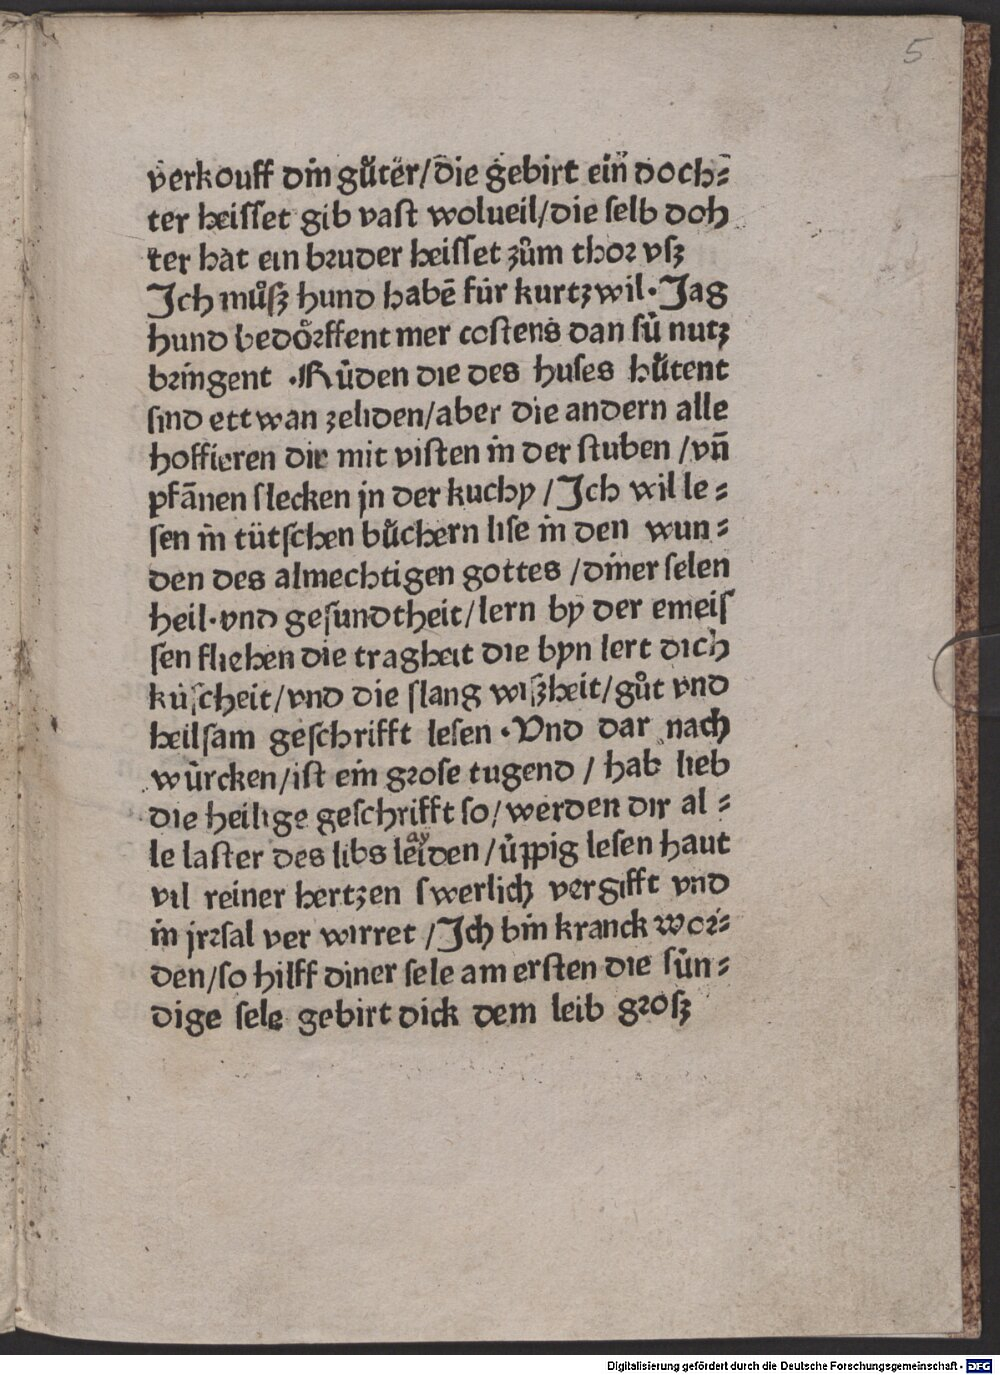 5
verkouff din guͤter/die gebirt ein doch⸗
ter heiſſet gib vaſt wolueil/die ſelb doh
ter hat ein bruder heiſſet zuͦm thoꝛ vſz
Jch muͦſz hund habē für kurtzwil·Jag
hund bedoͤꝛffent mer coſtens dan ſü nutz
bꝛingent ·Rüden die des huſes huͤtent
ſind ettwan zeliden/aber die andern alle
hoffieren dir mit viſten in der ſtuben /vn̄
pfānen ſlecken jn der kuchy /Jch wil le⸗
ſen in tütſchen buͤchern liſe in den wun⸗
den des almechtigen gottes /diner ſelen
heil·vnd geſundtheit/lern by der emeiſ
ſen fliehen die tragheit die byn lert dich
küſcheit/vnd die ſlang wiſzheit/guͦt vnd
heilſam geſchrifft leſen ·Vnd dar nach
würcken/iſt ein gꝛoſe tugend / hab lieb
die heilige geſchrifft ſo/werden dir al⸗
le laſter des libs leiden/üppig leſen haut
ay
vil reiner hertzen ſwerlich vergifft vnd
in jrꝛſal ver wirret /Jch bin kranck woꝛ⸗
den/ſo hilff diner ſele am erſten die ſün⸗
dige ſele gebirt dick dem leib gꝛoſz
Digitalisierung gefördert durch die Deutsche Forschungsgemeinschaft - DFG